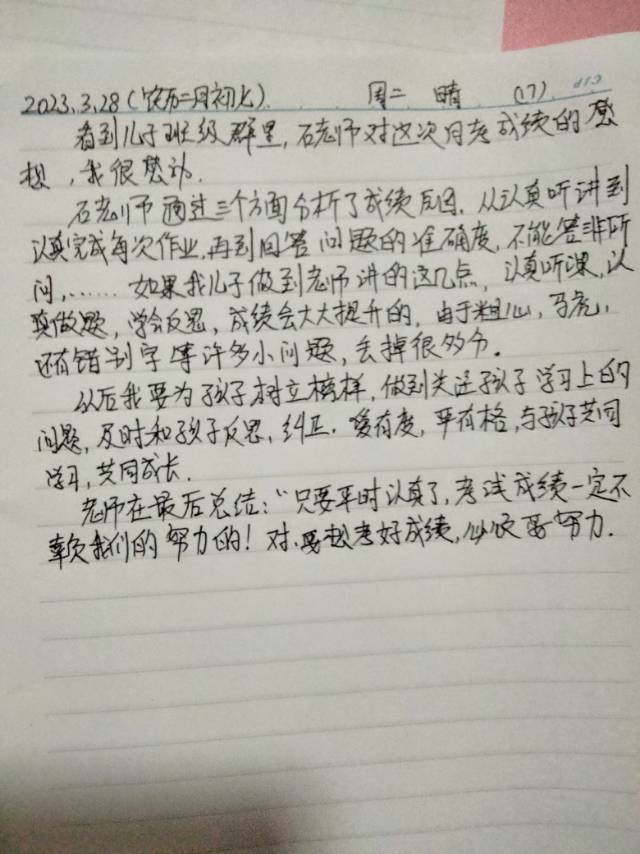 2023.3.28(农历二月初七). 周二 晴 (17)
看到儿子班级群里,石老师对这次月考成绩的感
想,我很感动.
石老师通过三个方面分析了成绩原因.从认真听讲到
认真完成每次作业,再到回答问题的准确度,不能答非所
问,……如果我儿子做到老师讲的这几点,认真听课,认
真做题,学会反思,成绩会大大提升的,由于粗心,马虎,
还有错别字等许多小问题,丢掉很多分。
从后我要为孩子树立榜样,做到关注孩子学习上的
问题,及时和孩子反思,纠正.爱有度,严有格,与孩子共同
学习,共同成长.
老师在最后总结:“只要平时认真了,考试成绩一定不
辜负我们的努力的!对.要想考好成绩,必须要努力.